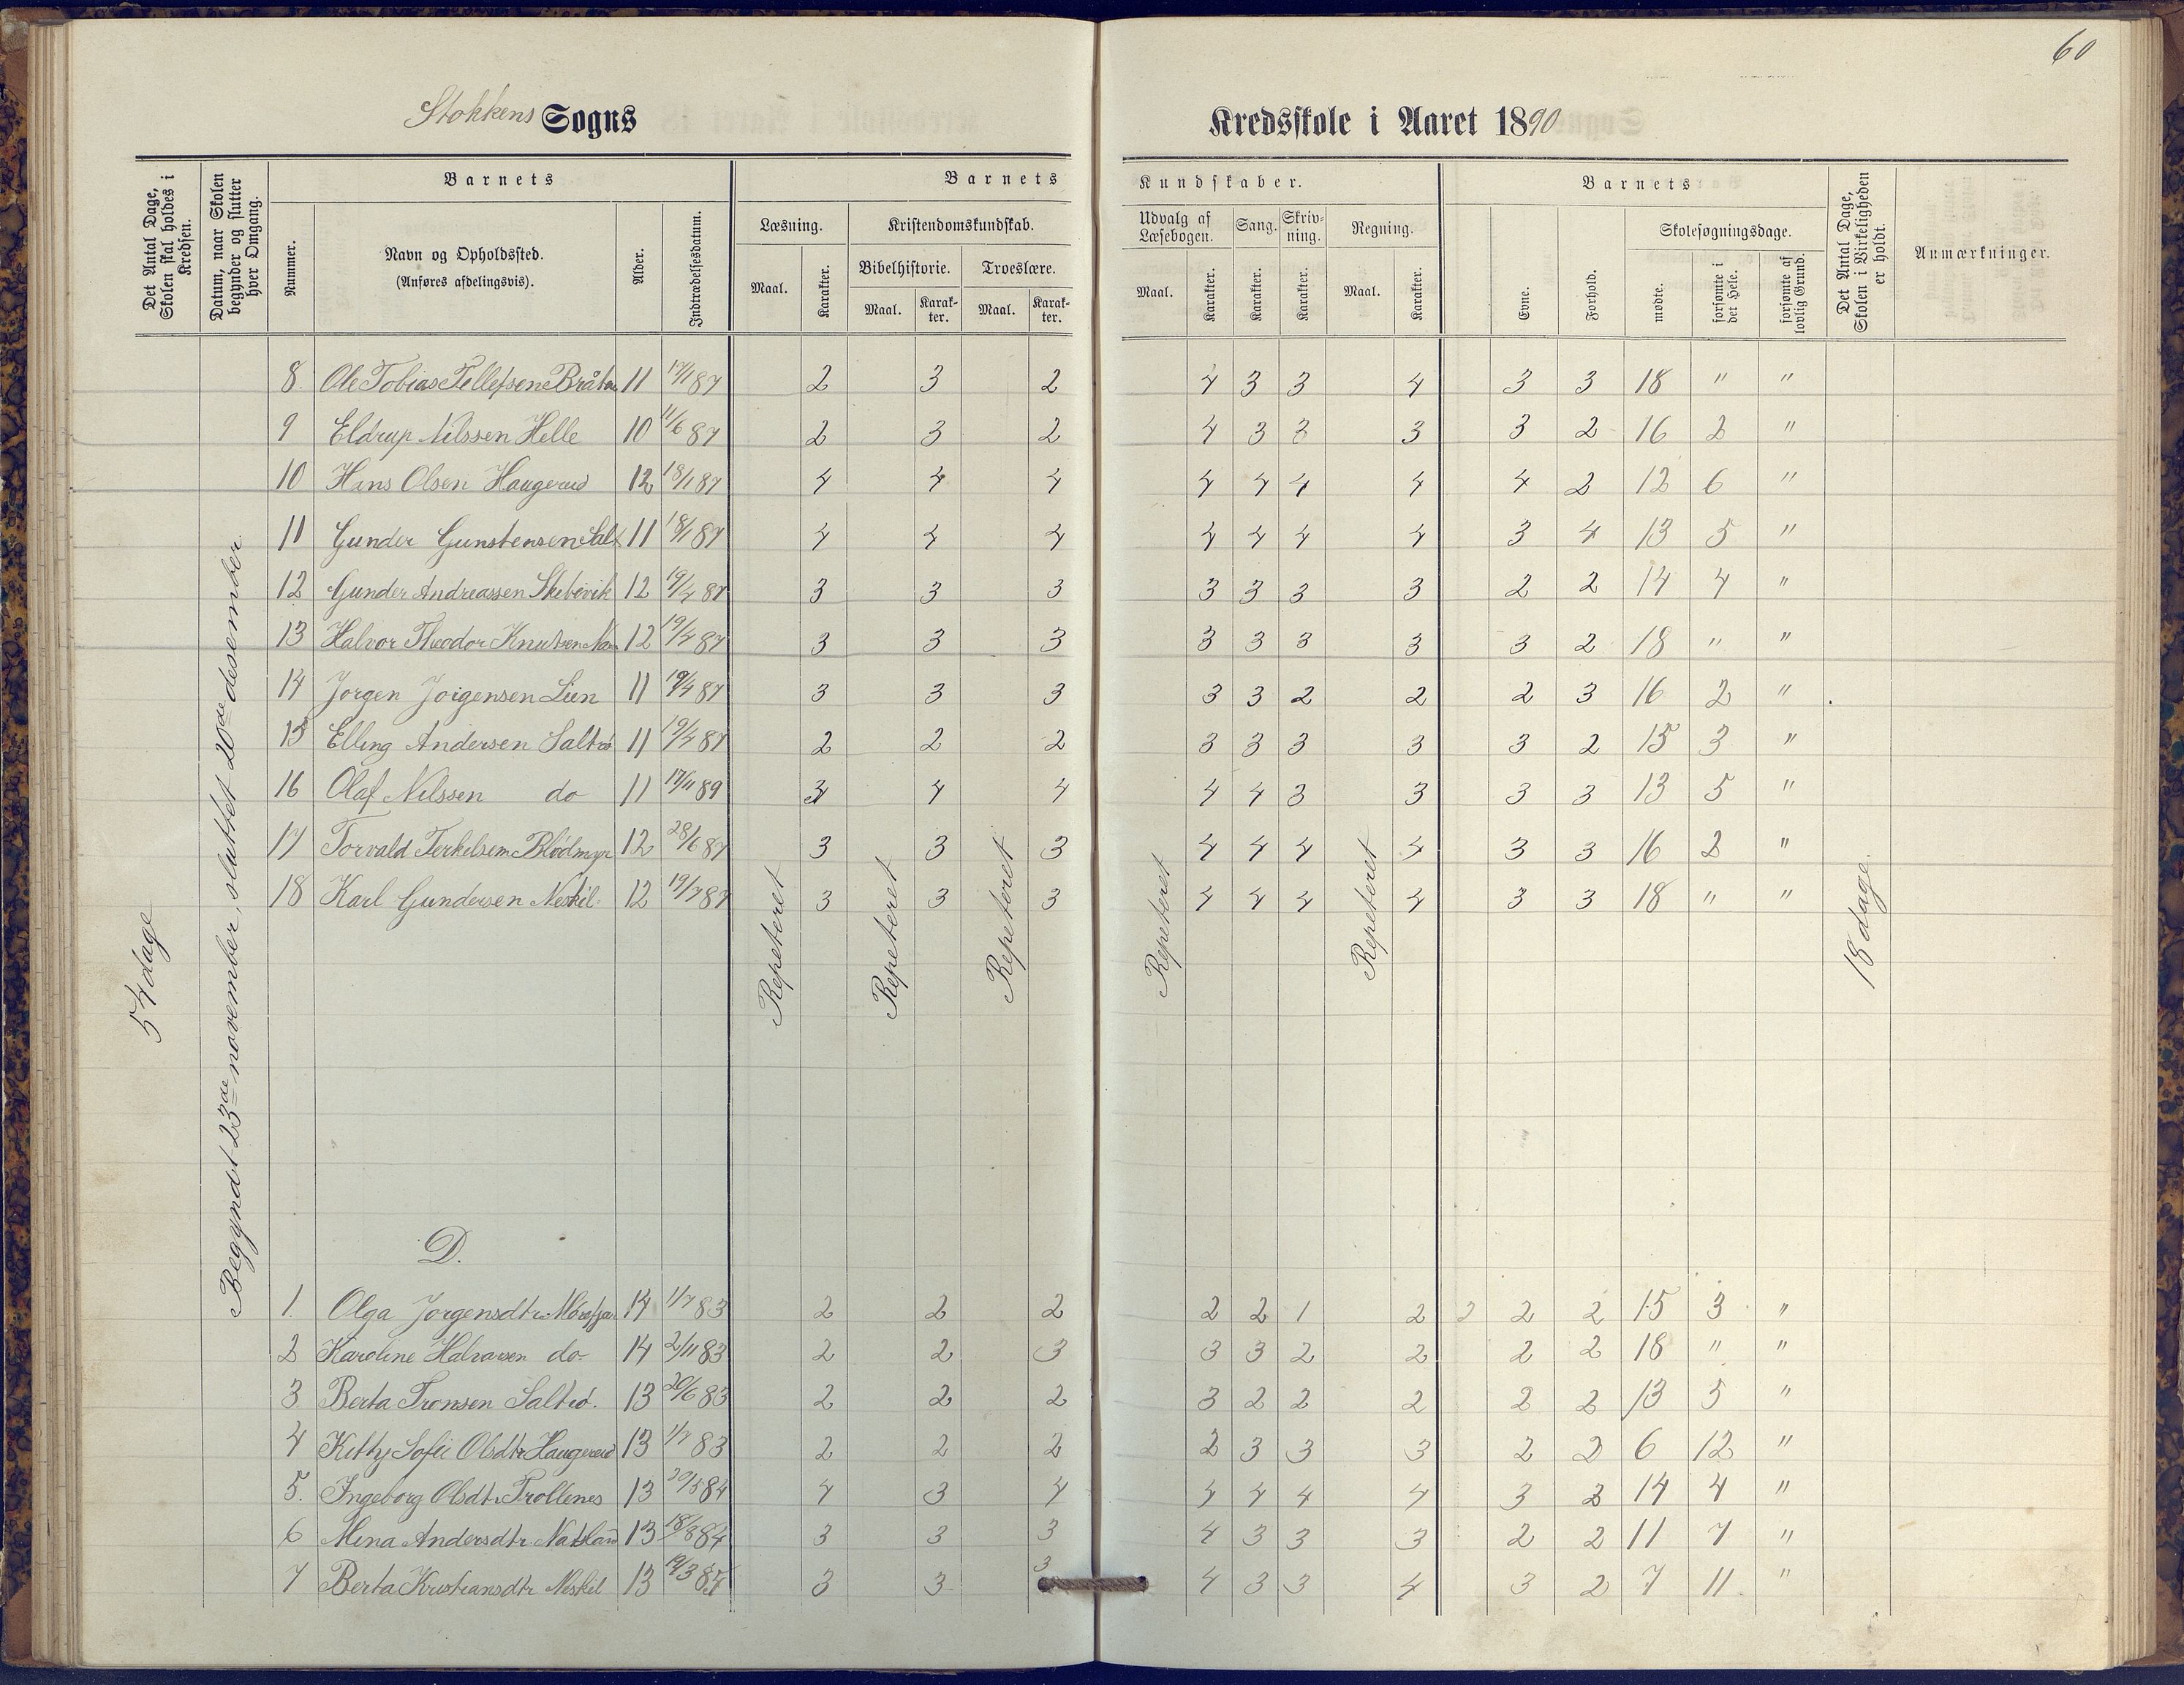 60
Stokkens Sogns Kredsskole i Aaret 1890
Det Antal Dage, Skolen skal holdes i Kredsen.
Datum, naar Skolen begynder og slutter hver Omgang.
Barnets
Nummer.
Navn og Opholdssted.
(Anføres afdelingsvis).
Alder.
Indtrædelsesdatum.
Barnets Kundskaber.
Læsning.
Maal.
Karakter.
Kristendomskundskab.
Bibelhistorie.
Maal.
Karakter.
Troeslære.
Maal.
Karakter.
Udvalg af Læsebogen.
Maal.
Karakter.
Sang.
Karakter.
Skrivning.
Karakter.
Regning.
Maal.
Karakter.
Barnets
Evne.
Forhold.
Skolesøgningsdage.
mødte.
forsømte i det Hele.
forsømte af lovlig Grund.
Det Antal Dage, Skolen i Virkeligheden er holdt.
Anmærkninger.
54 dage
Begyndt 23de november, sluttet 20de desember
8. Ole Tobias Tellefsen Bråten 11 17/1 87 2 3 2 4 3 3 4 3 3 18 " "
9 Eldrup Nilssen Helle 10 11/6 87 2 3 2 4 3 3 3 3 2 16 2 "
10 Hans Olsen Haugerud 12 18/1 87 4 4 4 4 4 4 4 4 2 12 6 "
11 Gunder Gunstensen Salt 11 18/1 87 4 4 4 4 4 4 4 3 4 13 5 "
12 Gunder Andreassen Skibivik 12 19/4 87 3 3 3 3 3 3 3 2 2 14 4 "
13 Halvor Theodor Knutsen 12 19/4 87 3 3 3 3 3 3 3 3 2 18 " "
14 Jorgen Jorgensen Lien 11 19/4 87 3 3 3 3 3 2 2 2 3 16 2 "
15 Elling Andersen Saltrø 11 19/4 87 2 2 2 3 3 3 3 3 2 15 3 "
16 Olaf Nilssen do 11 17/11 89 3 4 4 4 4 3 3 3 3 13 5 "
17 Torvald Terkelsen Blødmyr 12 28/6 87 3 3 3 4 4 4 4 3 3 16 2 "
18 Karl Gundersen Neskil 12 19/7 87 3 3 3 4 4 4 4 3 3 18 " "
Repeteret
Repeteret
Repeteret
Repeteret
Repeteret
18 dage
D.
1. Olga Jorgensdtr 14 1/7 83 2 2 2 2 2 1 2 2 2 2 15 3 "
2 Karoline Halvorsen do 14 2/11 83 2 2 3 3 3 2 2 2 2 18 " "
3 Berta Tronsen Saltrø. 13 20/6 83 2 2 2 3 2 2 2 2 2 13 5 "
4 Kitty Sofie Olsdtr Haugerud 13 1/7 83 2 2 2 2 3 3 3 2 2 6 12 "
5. Ingeborg Olsdtr. Trollenes 13 20/5 84 4 3 4 4 4 4 4 3 2 14 4 "
6 Mina Andersdtr. Natland 13 18/8 84 3 3 3 4 3 3 3 2 2 11 7 "
7 Berta Kristiansdtr Neskil 13 19/3 85 3 3 3 4 3 3 4 3 2 7 11 "